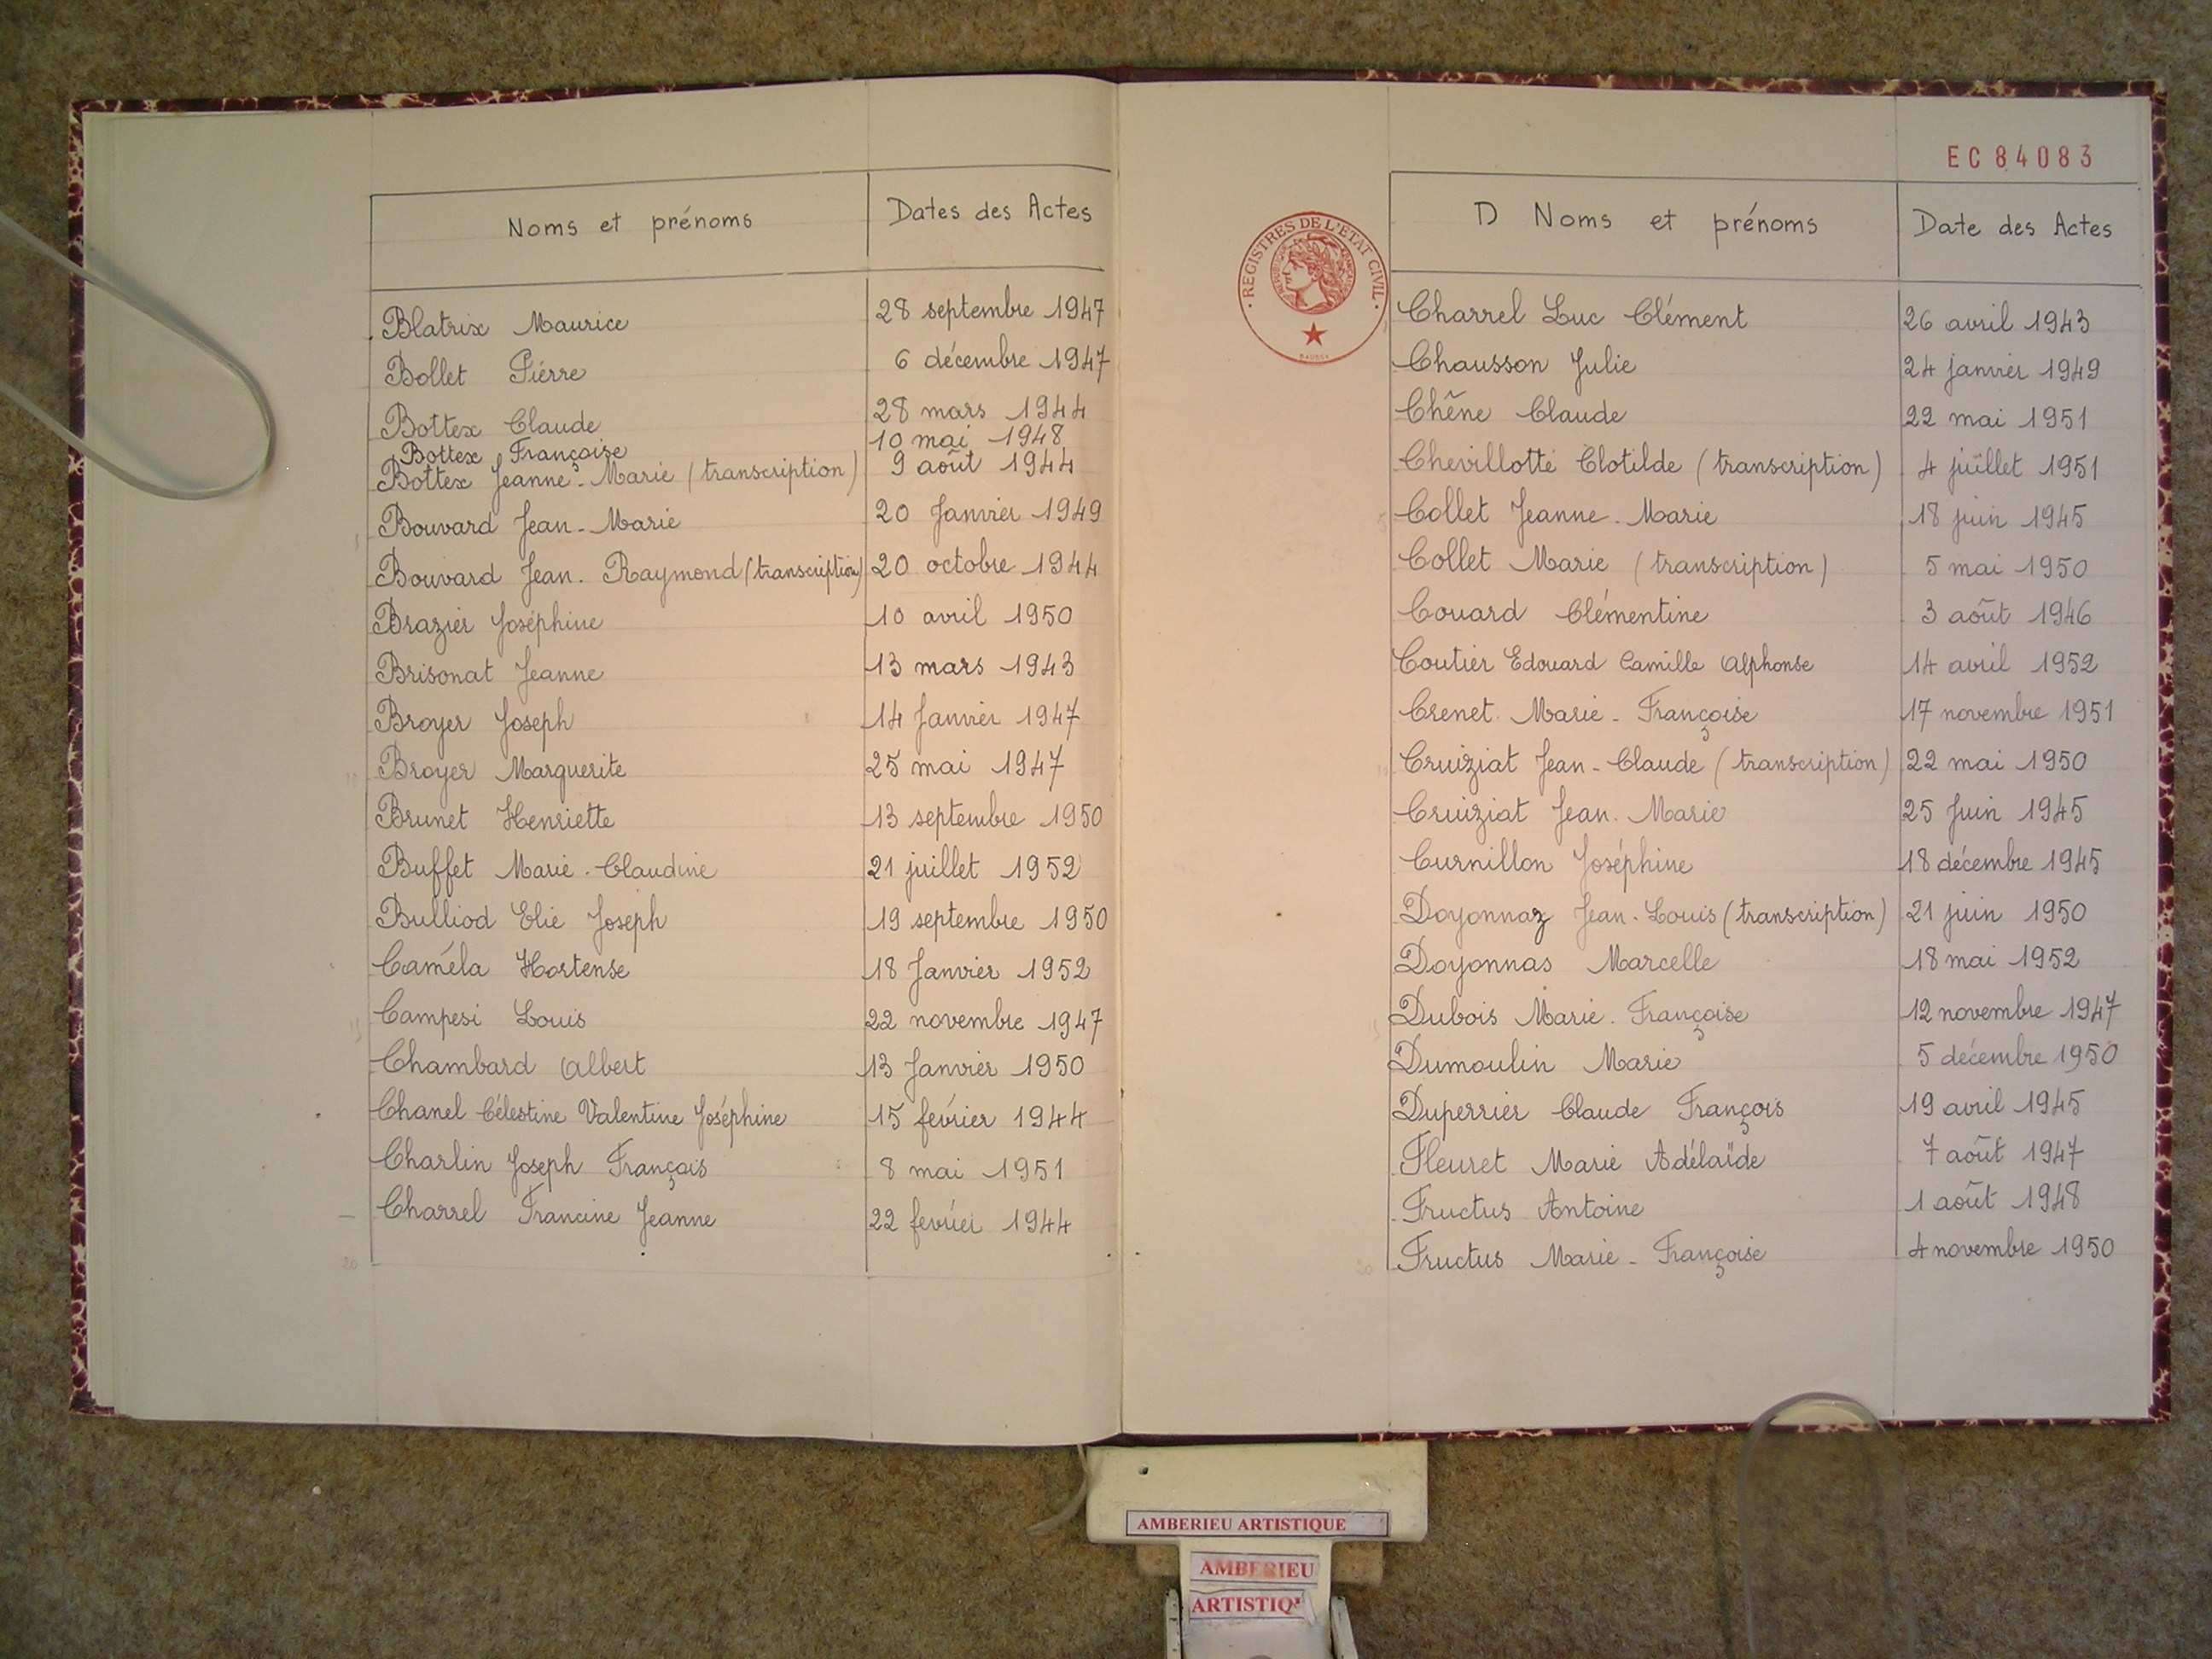 Noms et prénoms Dates des Actes
Blatrix Maurice 28 septembre 1947
Bollet Piérre 6 décembre 1947
Bottex Claude 28 mars 1944
Bottex Françoise 10 mai 1948
Bottex Jeanne-Marie (transcription) 9 août 1944
Bouvard Jean-Marie 20 Janvier 1949
Bouvard Jean-Raymond (transcription) 20 octobre 1944
Brazier Joséphine 10 avril 1950
Brisonat Jeanne 13 mars 1943
Broyer Joseph 14 Janvier 1947
Broyer Marguerite 25 mai 1947
Brunet Henriette 13 septembre 1950
Buffet Marie-Claudine 21 juillet 1952
Bulliod Elie Joseph 19 septembre 1950
Caméla Hortense 18 Janvier 1952
Campesi Louis 22 novembre 1947
Chambard Albert 13 Janvier 1950
Chanel Célestine Valentine Joséphine 15 février 1944
Charlin Joseph François 8 mai 1951
Charrel Francine Jeanne 22 février 1944
20
EC 84083
REGISTRES DE L'ÉTAT CIVIL
D Noms et prénoms Date des Actes
Charrel Luc Clément 26 avril 1943
Chausson Julie 24 janvier 1949
Chêne Claude 22 mai 1951
Chevillotte Clotilde (transcription) 4 juillet 1951
Collet Jeanne-Marie 18 juin 1945
Collet Marie (transcription) 5 mai 1950
Couard Clémentine 3 août 1946
Coutier Edouard Camille Alphonse 14 avril 1952
Crenet Marie-Françoise 17 novembre 1951
Cruiziat Jean-Claude (transcription) 22 mai 1950
Cruiziat Jean-Marie 25 Juin 1945
Curnillon Joséphine 18 décembre 1945
Doyonnaz Jean-Louis (transcription) 21 juin 1950
Doyonnas Marcelle 18 mai 1952
Dubois Marie-Françoise 12 novembre 1947
Dumoulin Marie 5 décembre 1950
Duperrier Claude François 19 avril 1945
Fleuret Marie Adélaïde 7 août 1947
Fructus Antoine 1 août 1948
Fructus Marie-Françoise 4 novembre 1950
20
AMBERIEU ARTISTIQUE
AMBERIEU
ARTISTIQ